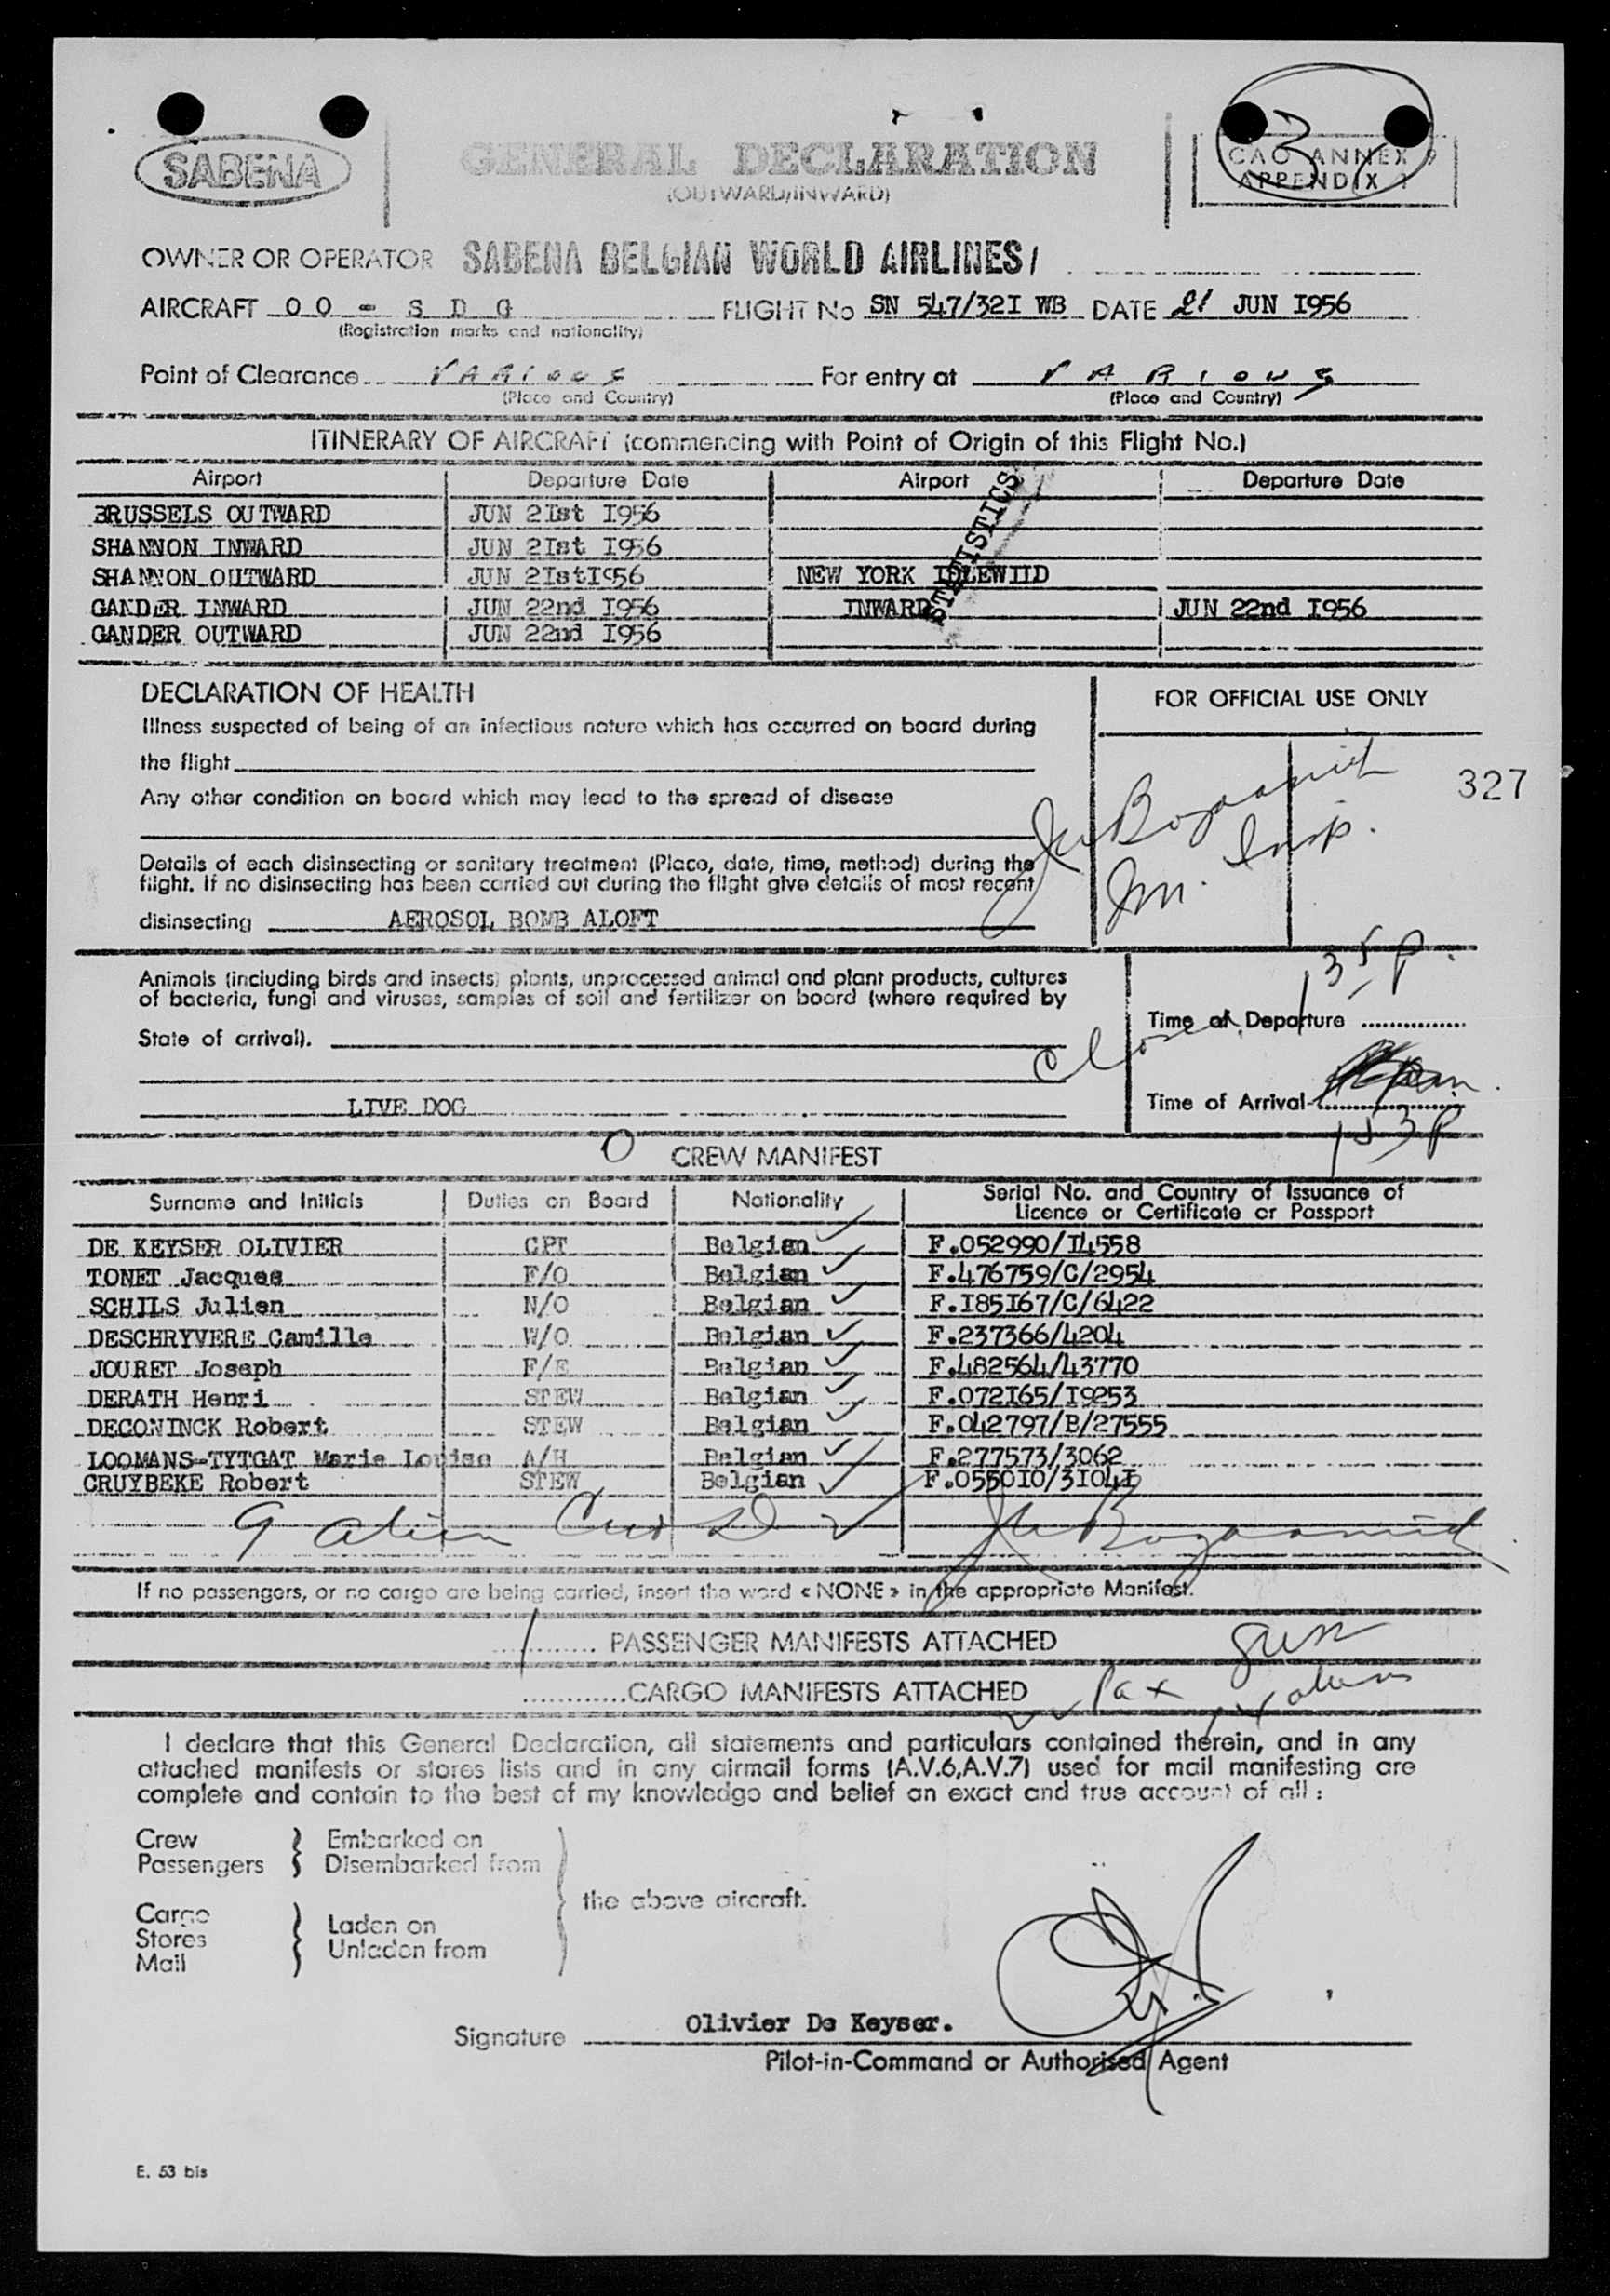 SABENA
GENERAL DECLARATION
(OUTWARD/INWARD)
CAO ANNEX 9
APPENDIX 1
OWNER OR OPERATOR SABENA BELGIAN WORLD AIRLINES/
AIRCRAFT OO - S D G FLIGHT No SN 547/32I WB DATE 21 JUN I956
(Registration marks and nationality)
Point of Clearance VARIOUS For entry at VARIOUS
(Place and Country) (Place and Country)
ITINERARY OF AIRCRAFT (commencing with Point of Origin of this Flight No.)
Airport Departure Date Airport Departure Date
BRUSSELS OUTWARD JUN 2Ist I956
SHANNON INWARD JUN 2Ist I956
SHANNON OUTWARD JUN 2IstI956 NEW YORK IDLEWIID
GANDER INWARD JUN 22nd I956 INWARD JUN 22nd I956
GANDER OUTWARD JUN 22nd I956
STATISTICS
DECLARATION OF HEALTH
FOR OFFICIAL USE ONLY
Illness suspected of being of an infectious nature which has occurred on board during
the flight
327
Any other condition on board which may lead to the spread of disease
Imm. Insp.
Details of each disinsecting or sanitary treatment (Place, date, time, method) during the
flight. If no disinsecting has been carried out during the flight give details of most recent
disinsecting AEROSOL BOMB ALOFT
Animals (including birds and insects) plants, unprocessed animal and plant products, cultures
of bacteria, fungi and viruses, samples of soil and fertilizer on board (where required by
State of arrival).
135 P
Time of Departure
Time of Arrival
153 P
LIVE DOG
CREW MANIFEST
Surname and Initials Duties on Board Nationality Serial No. and Country of Issuance of
Licence or Certificate or Passport
DE KEYSER OLIVIER CPT Belgian F.052990/I4558
TONET Jacques F/O Belgian F.476759/C/2954
SCHILS Julien N/O Belgian F.I85I67/C/6422
DESCHRYVERE Camille W/O Belgian F.237366/4204
JOURET Joseph F/E Belgian F.482564/43770
DERATH Henri STEW Belgian F.072I65/I9253
DECONINCK Robert STEW Belgian F.042797/B/27555
LOOMANS-TYTGAT Marie Louise A/H Belgian F.277573/3062
CRUYBEKE Robert STEW Belgian F.0550I0/3I04I
9 alien
If no passengers, or no cargo are being carried, insert the word « NONE » in the appropriate Manifest.
1 PASSENGER MANIFESTS ATTACHED
CARGO MANIFESTS ATTACHED Pax
I declare that this General Declaration, all statements and particulars contained therein, and in any
attached manifests or stores lists and in any airmail forms (A.V.6,A.V.7) used for mail manifesting are
complete and contain to the best of my knowledge and belief an exact and true account of all :
Crew Embarked on
Passengers Disembarked from
the above aircraft.
Cargo
Stores Laden on
Mail Unladen from
Signature Olivier De Keyser.
Pilot-in-Command or Authorised Agent
E. 53 bis